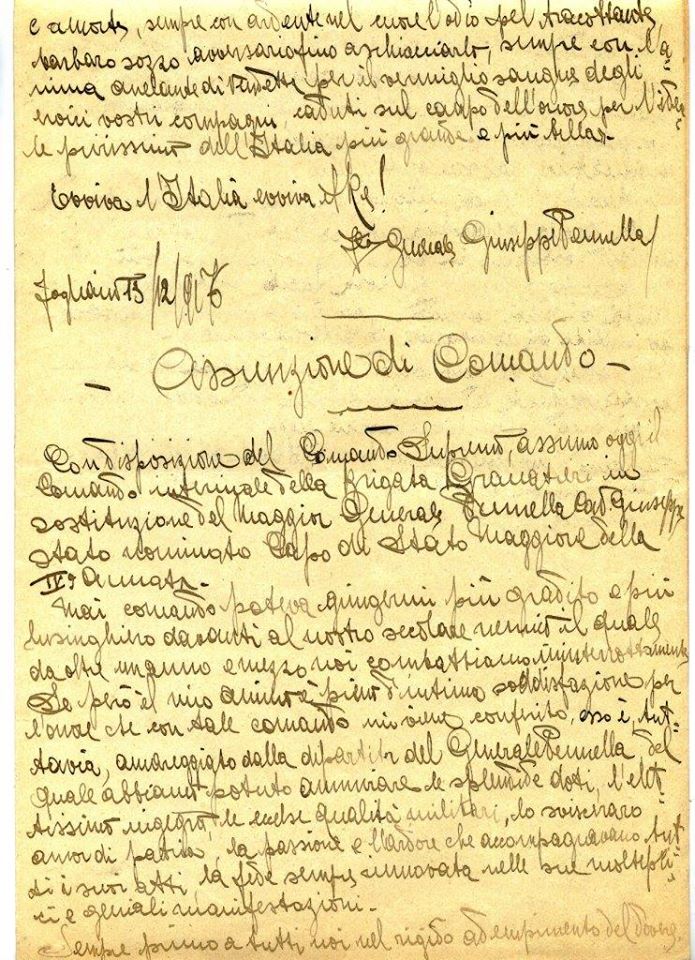 e a morte, sempre con ardente nel cuore l'odio pel tracottante,
barbaro sozzo avversario fino a schiacciarlo, sempre con l'a-
nima anelante di vendetta per il vermiglio sangue degli
eroici vostri compagni, caduti sul campo dell'onore per l'idea-
le purissimo dell'Italia più grande e più bella.-
Evviva l'Italia evviva il Re!
Generale Giuseppe Pennella
13/12/917
- Assunzione di Comando -
Con disposizione del Comando Supremo, assumo oggi il
Comando interinale della Brigata Granatieri in
sostituzione del Maggior Generale Pennella Cav. Giuseppe
stato nominato Capo di Stato Maggiore della
IVª Armata.-
Mai comando poteva giungermi più gradito e più
lusinghiero davanti al nostro secolare nemico il quale
da oltre un anno e mezzo noi combattiamo ininterrottamente
Se però il mio animo è pieno d'intima soddisfazione per
l'onore che con tale comando mi viene conferito, esso è, tut-
tavia, amareggiato dalla dipartita del Generale Pennella del
quale abbiamo potuto ammirare le splendide doti, l'elet-
tissimo ingegno, le eccelse qualità militari, lo sviscerato
amor di patria, la passione e l'ardore che accompagnavano tut-
ti i suoi atti, la fede sempre innovata nelle sue moltepli-
ci e geniali manifestazioni.-
Sempre primo a tutti noi nel rigido adempimento del dovere,